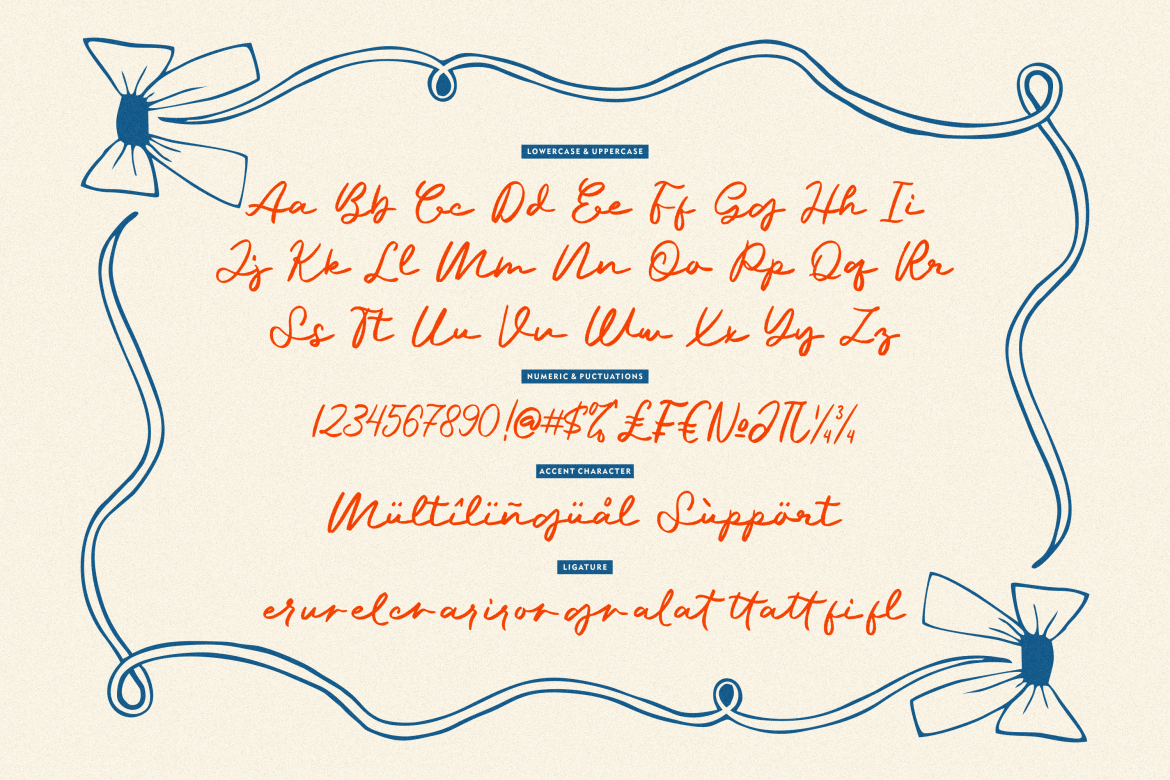 LOWERCASE & UPPERCASE
Aa Bb Cc Dd Ee Ff Gg Hh Ii
Jj Kk Ll Mm Nn Oo Pp Qq Rr
Ss Tt Uu Vv Ww Xx Yy Zz
NUMERIC & PUCTUATIONS
1234567890!@#$% £₣€№∂∏¼¾
ACCENT CHARACTER
Mültîlïñgüål Sùppört
LIGATURE
er ur el cr ar ir or gr al at tt att fi fl